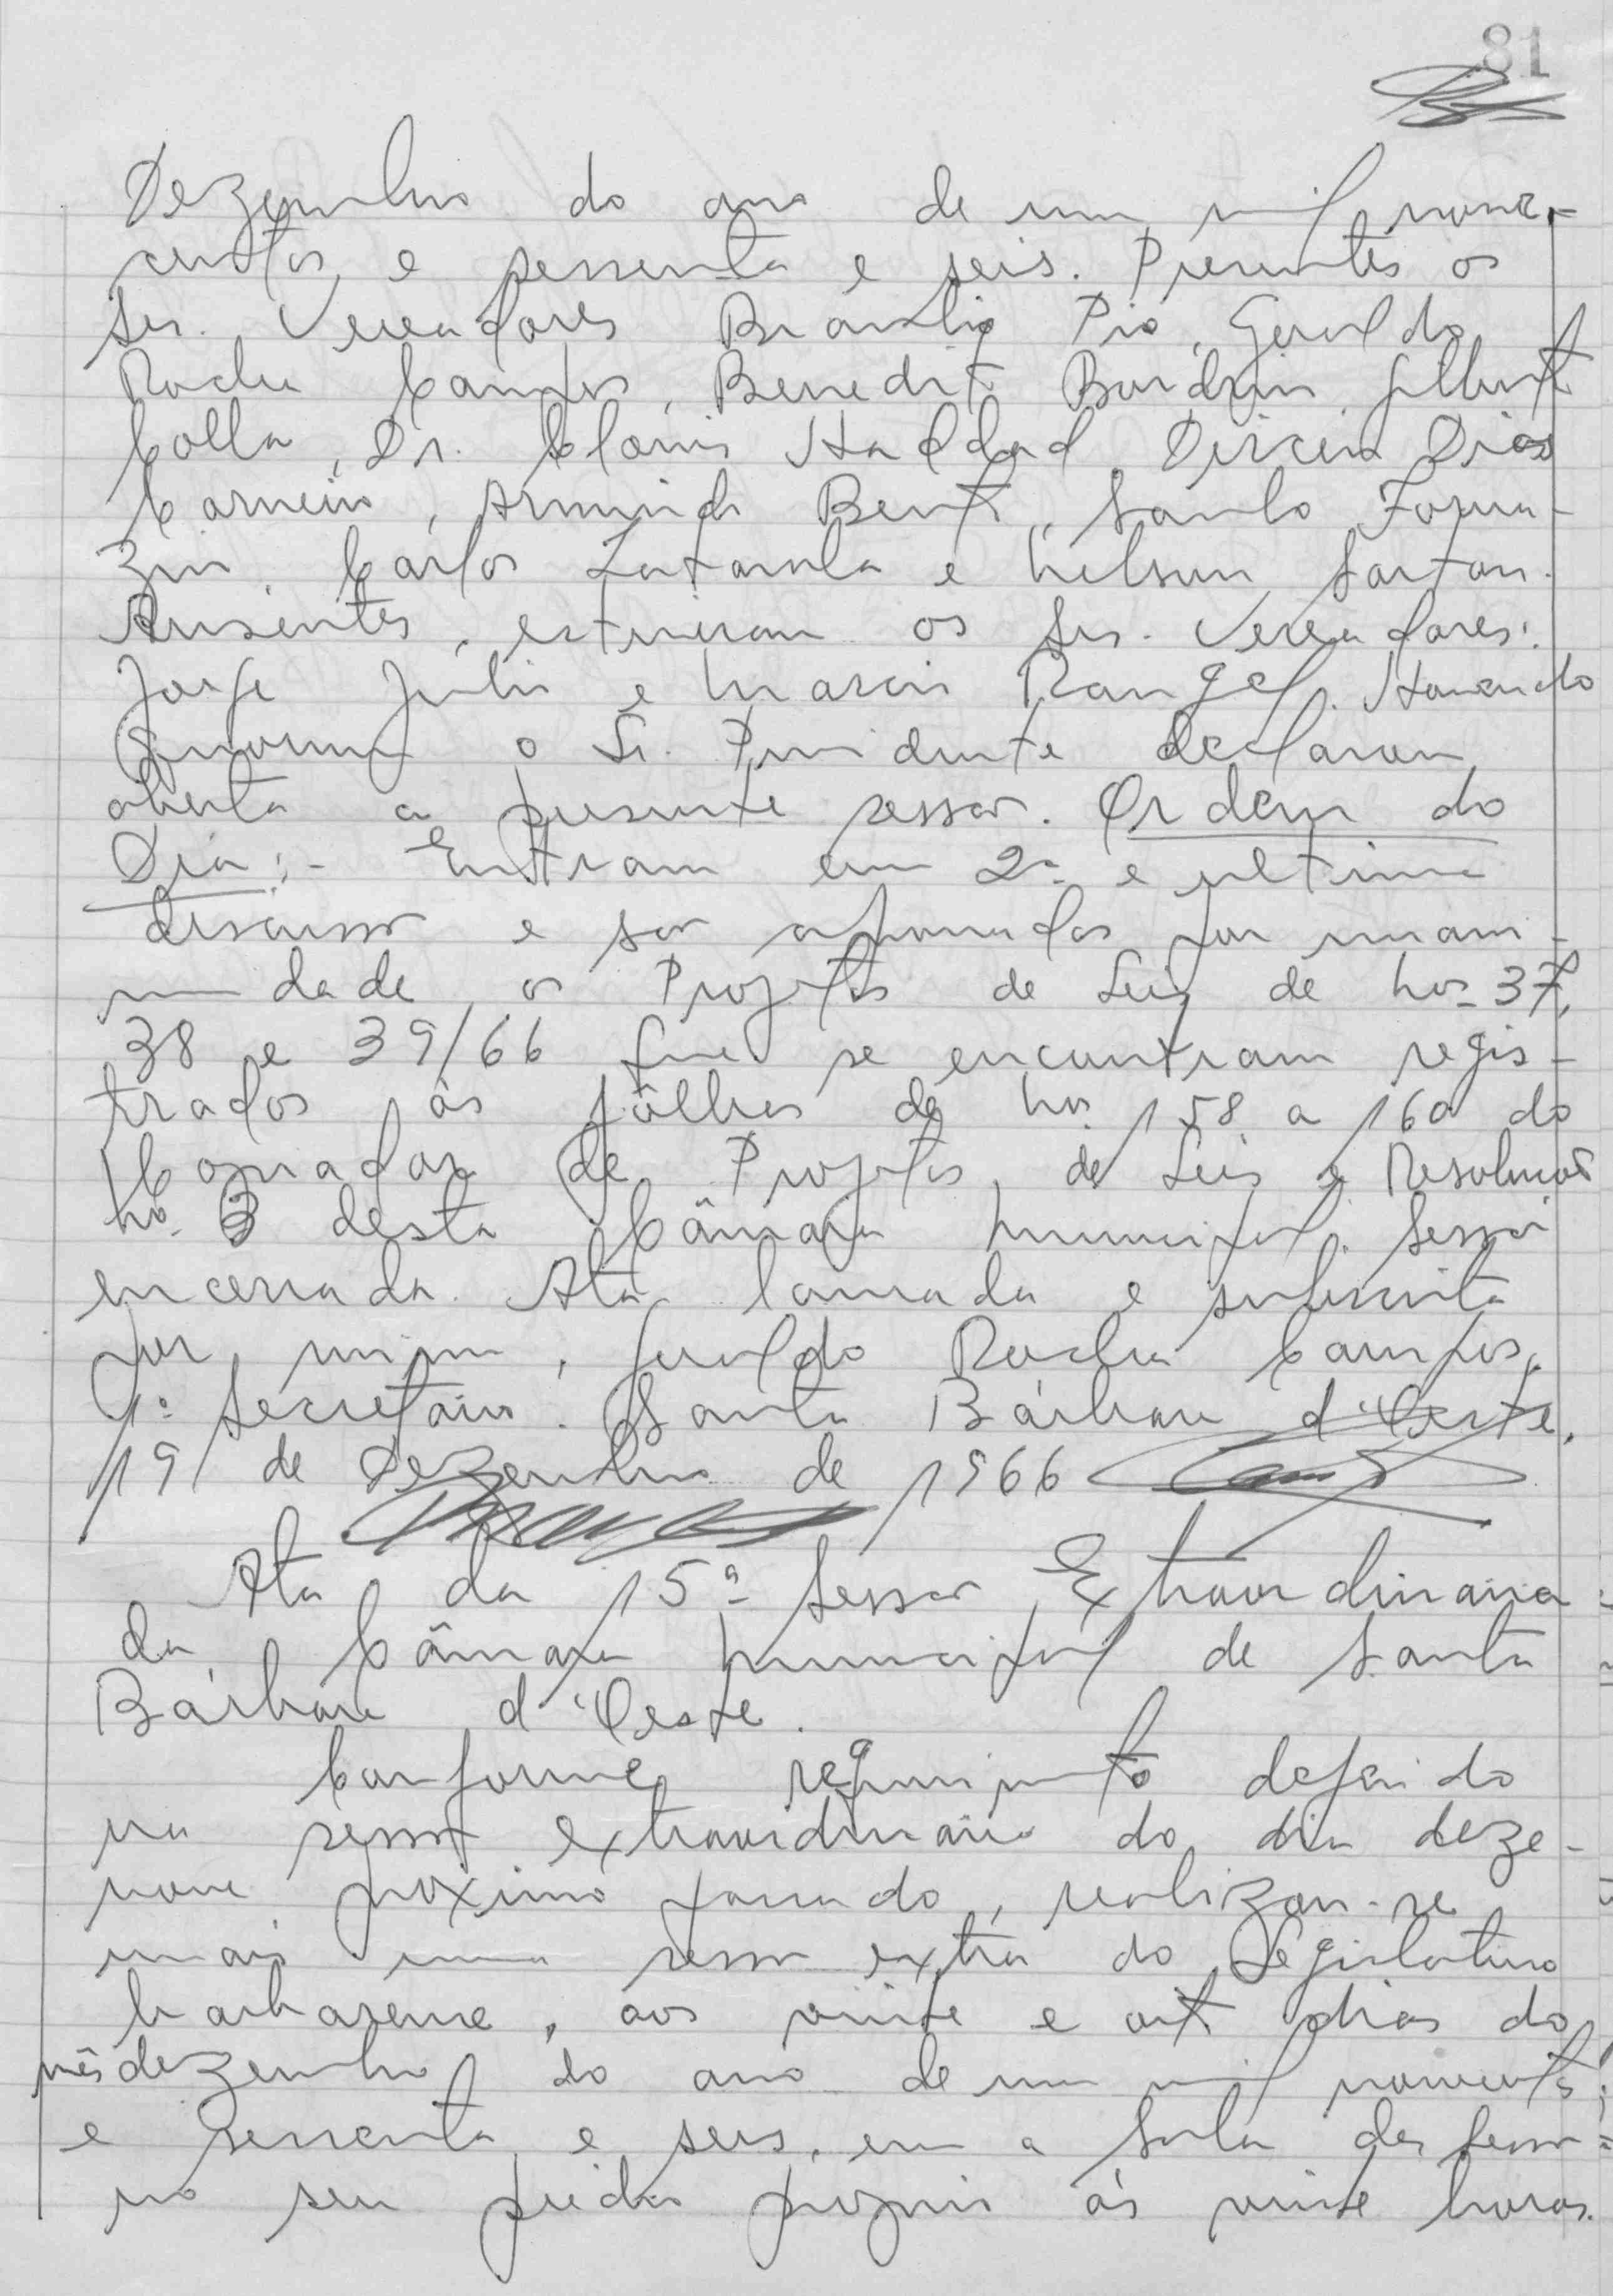 81
Dezembro do ano de um mil nove-
centos e sessenta e seis. Presentes os
Srs. Vereadores Braulio Pio, Geraldo
Rocha Campos, Benedito Bordrin, Gilberto
Colla, Dr. Clovis Haddad, Dirceu Dias
Carneiro, Armindo Bento, Santo Forna-
zin, Carlos e Nelson Sartori.
Ausentes, estiveram os Srs. Vereadores:
Jorge Julio e Marcio Rangel. Havendo
Quorum o Sr. Presidente declarou
aberta a presente sessão. Ordem do
Dia:- Entram em 2ª e ultima
discussão e são aprovados por unani-
midade os Projetos de Leis de Nos 37,
38 e 39/66 que se encontram regis-
trados às fôlhas de nos 158 a 160 do
Copiador de Projetos de Leis e Resoluções
No 3 desta Câmara Municipal. Sessão
encerrada. Ata lavrada e subscrita
por mim, Geraldo Rocha Campos,
1º Secretário. Santa Bárbara d'Oeste,
19 de Dezembro de 1966
Ata da 15ª Sessão Extraordinaria
da Câmara Municipal de Santa
Bárbara d'Oeste.
Conforme requerimento deferido
na sessão extraordinária do dia deze-
nove próximo passado, realizou-se
mais uma sessão extra do Legislativo
barbarense, aos vinte e oito dias do
mês dezembro do ano de um mil novecentos
e sessenta e seis, em a Sala das Sessões
no seu prédio proprio às vinte horas.